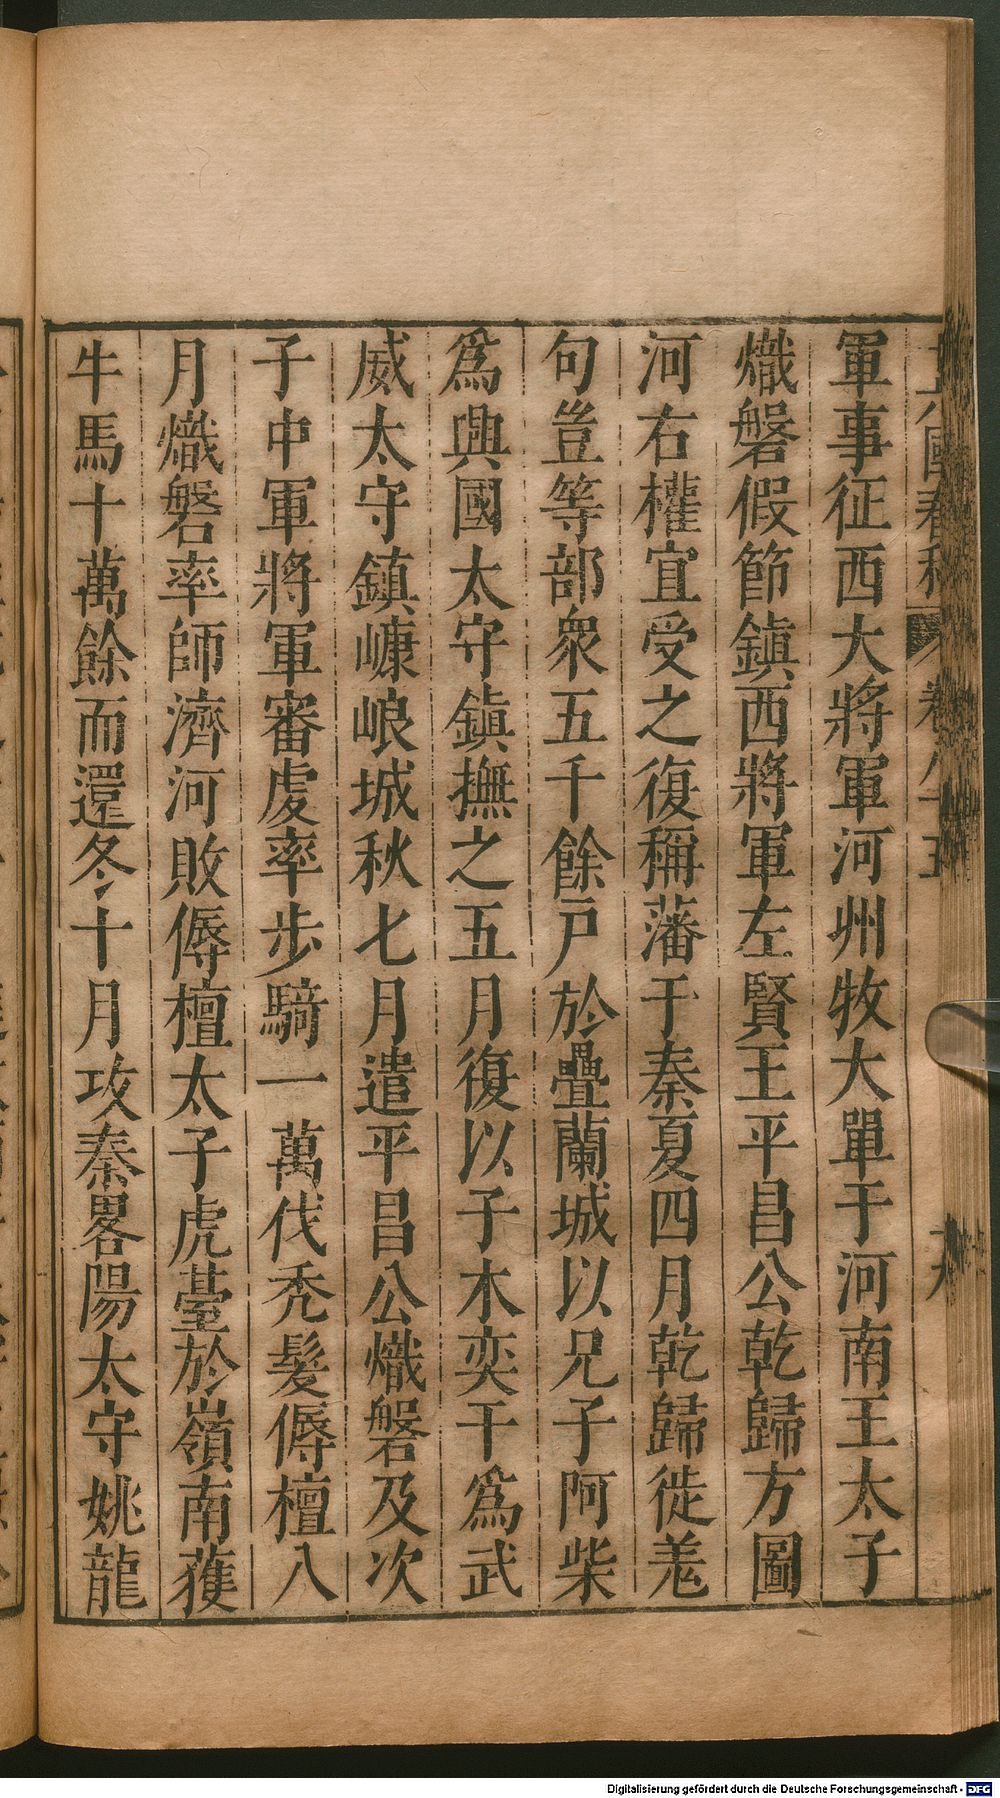 軍事征西大將軍河州牧大單于河南王太子
熾磐假節鎮西將軍左賢王平昌公乾歸方圖
河右權宜受之復稱藩于秦夏四月乾歸徙羗
句豈等部衆五千餘戸於疊蘭城以兄子阿柴
爲興國太守鎮撫之五月復以子木奕干爲武
威太守鎮嵻㟍城秋七月遣平昌公熾磐及次
子中軍將軍審虔率步騎一萬伐禿髮傉檀八
月熾磐率師濟河敗傉檀太子虎䑓於嶺南獲
牛馬十萬餘而還冬十月攻秦畧陽太守姚龍
Digitalisierung gefördert durch die Deutsche Forschungsgemeinschaft - DFG